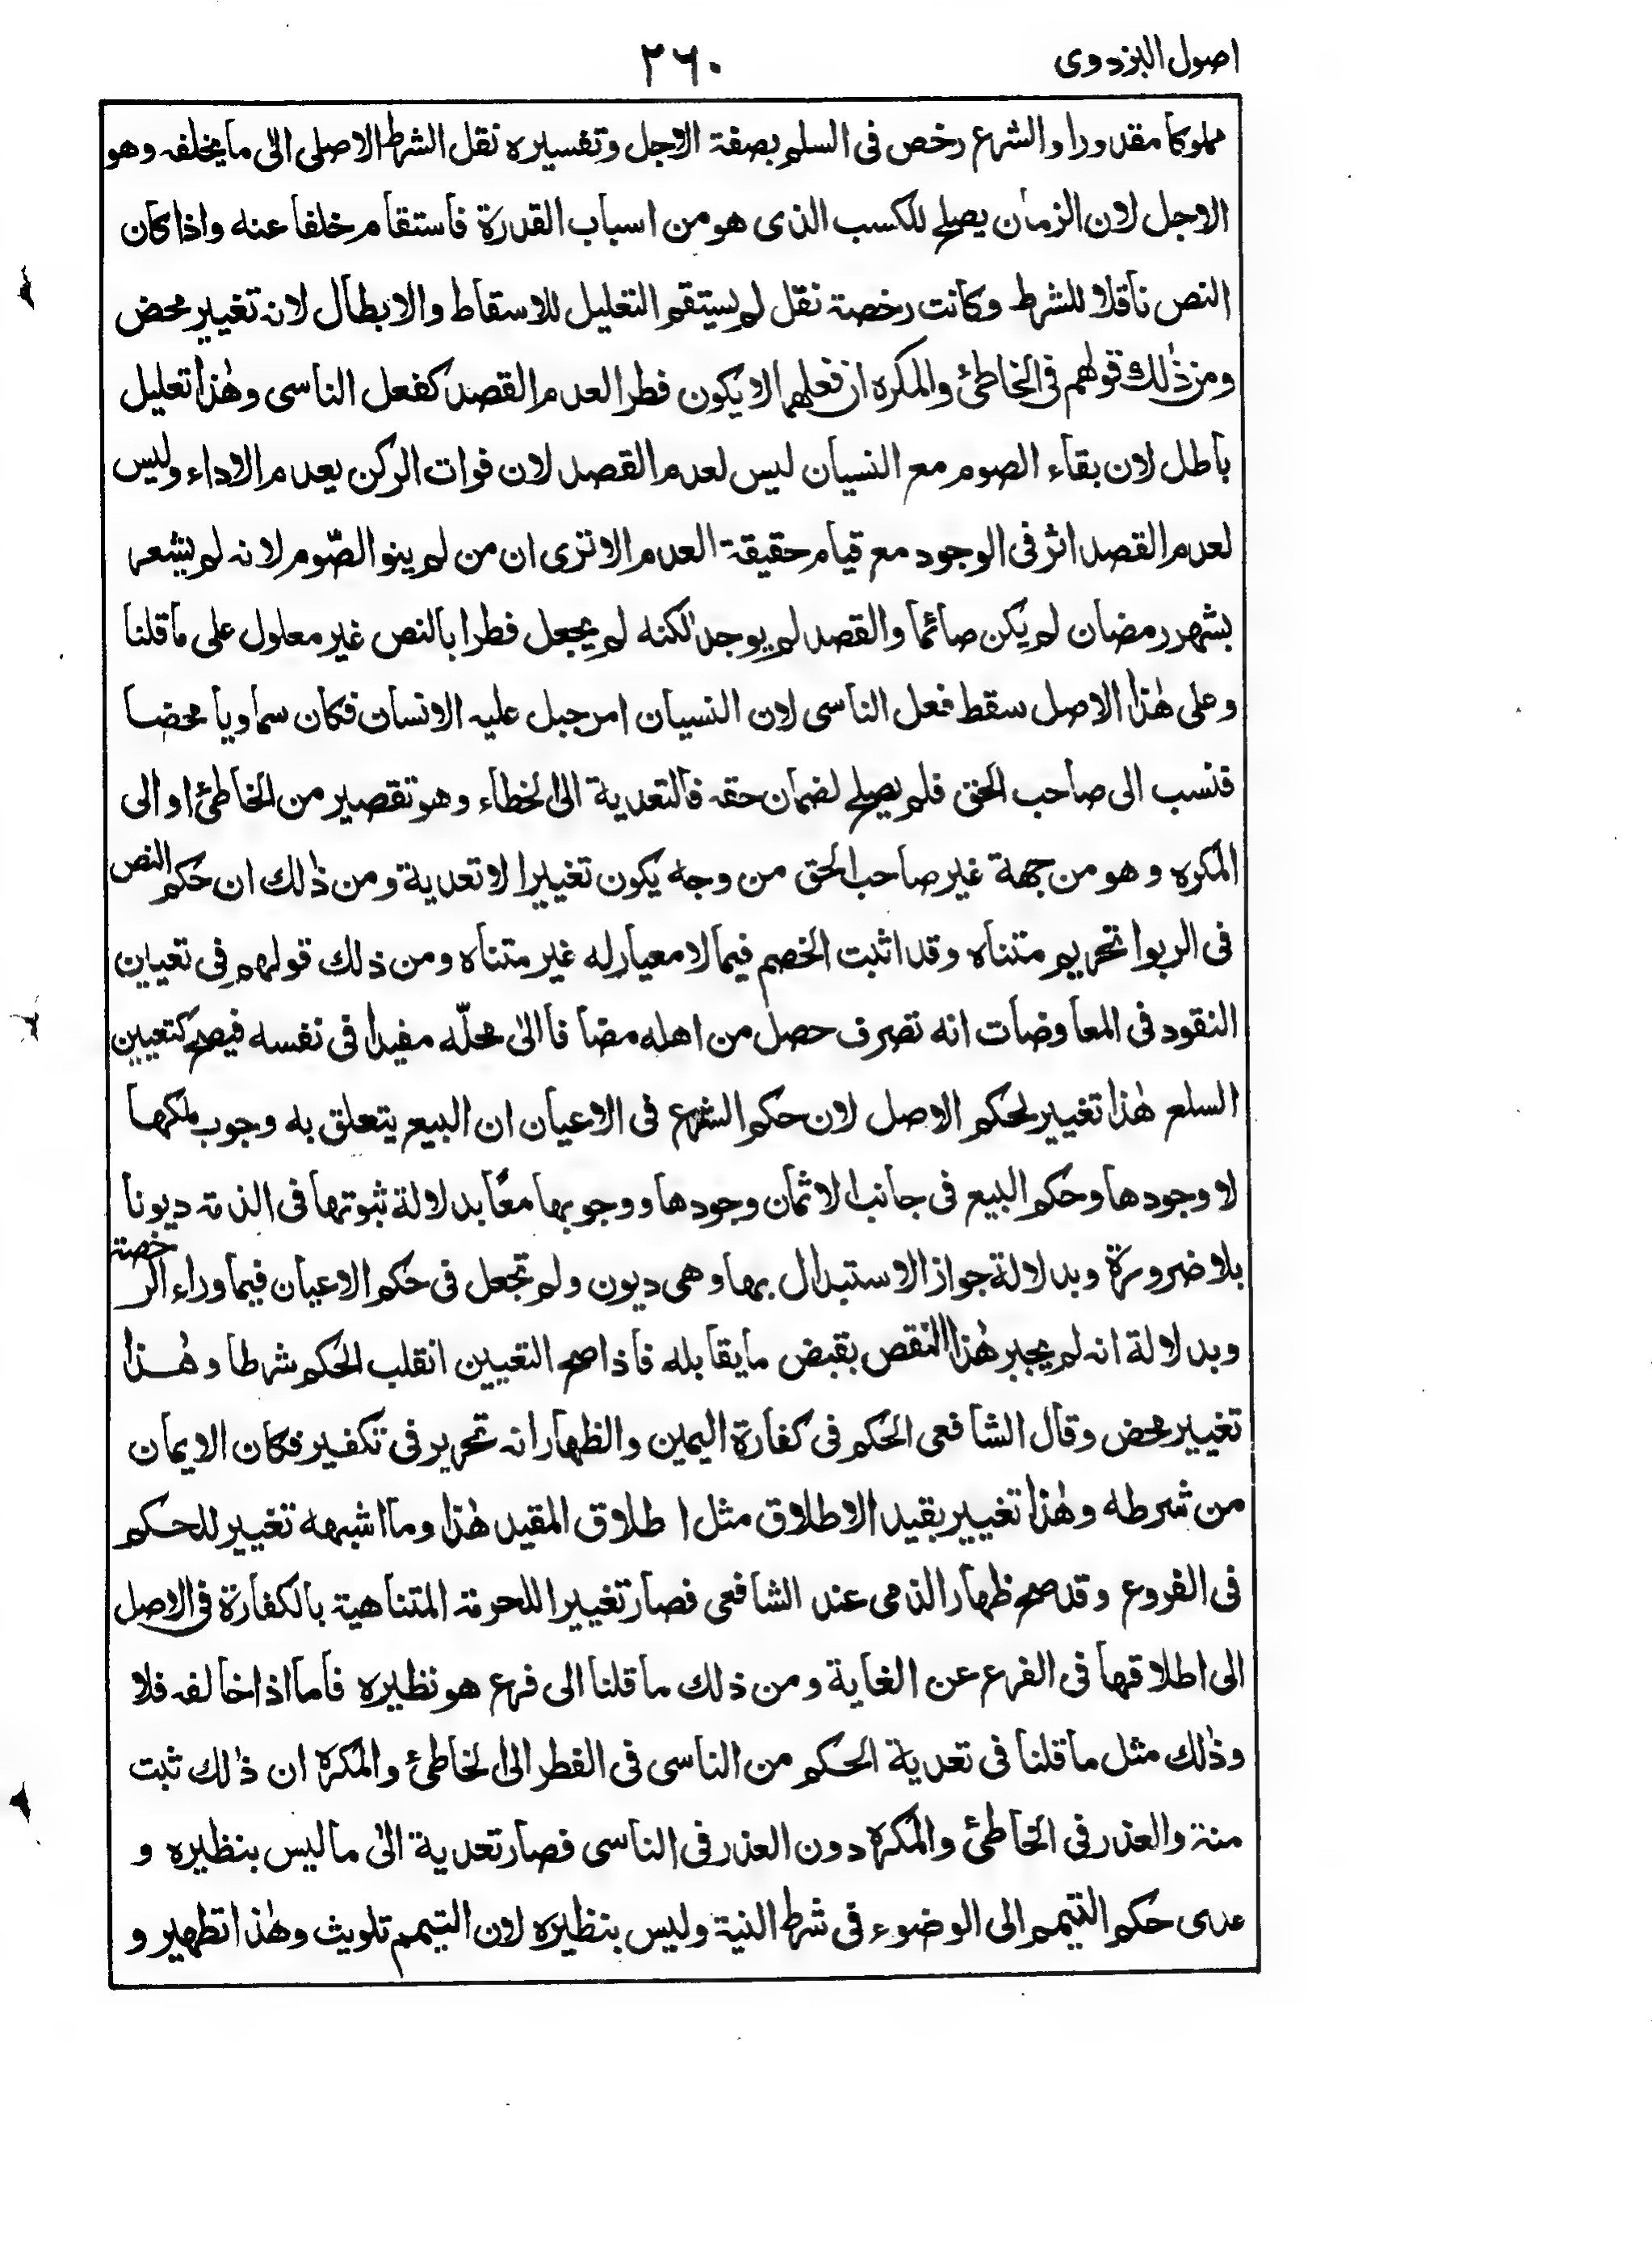 اصول البزدوی
۲۶۰
مملوکا مقدورا والشرع رخص فی السلم بصفة الاجل وتفسیره نقل الشرط الاصلی الٰی ما یخلفه وهو
الاجل لان الزمان یصلح للکسب الذی هو من اسباب القدرة فاستقام خلفا عنه واذا کان
النص ناقلا للشرط وکانت رخصة نقل لم یستقم التعلیل للاسقاط والابطال لانه تغییر محض
ومن ذٰلك قولهم فی الخاطئ والمکره ان فعلهما لا یکون فطرا لعدم القصد کفعل الناسی وهٰذا تعلیل
باطل لان بقاء الصوم مع النسیان لیس لعدم القصد لان فوات الرکن یعدم الاداء ولیس
لعدم القصد اثر فی الوجود مع قیام حقیقة العدم الا تری ان من لم ینو الصّوم لانه لم یشعر
بشهر رمضان لم یکن صائما والقصد لم یوجد لٰکنه لم یجعل فطرا بالنص غیر معلول علی ما قلنا
وعلی هٰذا الاصل سقط فعل الناسی لان النسیان امر جبل علیه الانسان فکان سماویا محضا
فنسب الی صاحب الحق فلم یصلح لضمان حقه فالتعدیة الی الخطاء وهو تقصیر من الخاطئ او الی
المکره وهو من جهة غیر صاحب الحق من وجه یکون تغییرا لا تعدیة ومن ذٰلك ان حکم النص
فی الربوا تحریم متناه وقد اثبت الخصم فیما لا معیار له غیر متناه ومن ذلك قولهم فی تعیان
النقود فی المعاوضات انه تصرف حصل من اهله مضافا الیٰ محلّه مفیدا فی نفسه فیصح کتعیین
السلع هٰذا تغییر لحکم الاصل لان حکم الشرع فی الاعیان ان البیع یتعلق به وجوب ملکها
لا وجودها وحکم البیع فی جانب الاثمان وجودها ووجوبها معًا بدلالة ثبوتها فی الذمة دیونا
بلا ضرورة وبدلالة جواز الاستبدال بها وهی دیون ولم تجعل فی حکم الاعیان فیما وراء الرخصة
وبدلالة انه لم یجبر هٰذا النقص بقبض ما یقابله فاذا صح التعیین انقلب الحکم شرطا وهٰذا
تغییر محض وقال الشافعی الحکم فی کفارة الیمین والظهار انه تحریر فی تکفیر فکان الایمان
من شرطه وهٰذا تغییر بقید الاطلاق مثل اطلاق المقید هٰذا وما اشبهه تغییر للحکم
فی الفروع وقد صح ظهار الذمی عند الشافعی فصار تغییرا للحرمة المتناهیة بالکفارة فی الاصل
الی اطلاقها فی الفرع عن الغایة ومن ذلك ما قلنا الی فرع هو نظیره فاما اذا خالفه فلا
وذٰلك مثل ما قلنا فی تعدیة الحکم من الناسی فی الفطر الی الخاطئ والمکره ان ذٰلك ثبت
منة والعذر فی الخاطئ والمکره دون العذر فی الناسی فصار تعدیة الیٰ ما لیس بنظیره و
عدی حکم التیمم الی الوضوء فی شرط النیة ولیس بنظیره لان التیمم تلویث وهٰذا تطهیر و